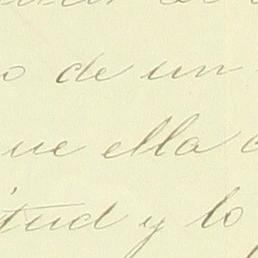 o de un
ue ella
tud y lo